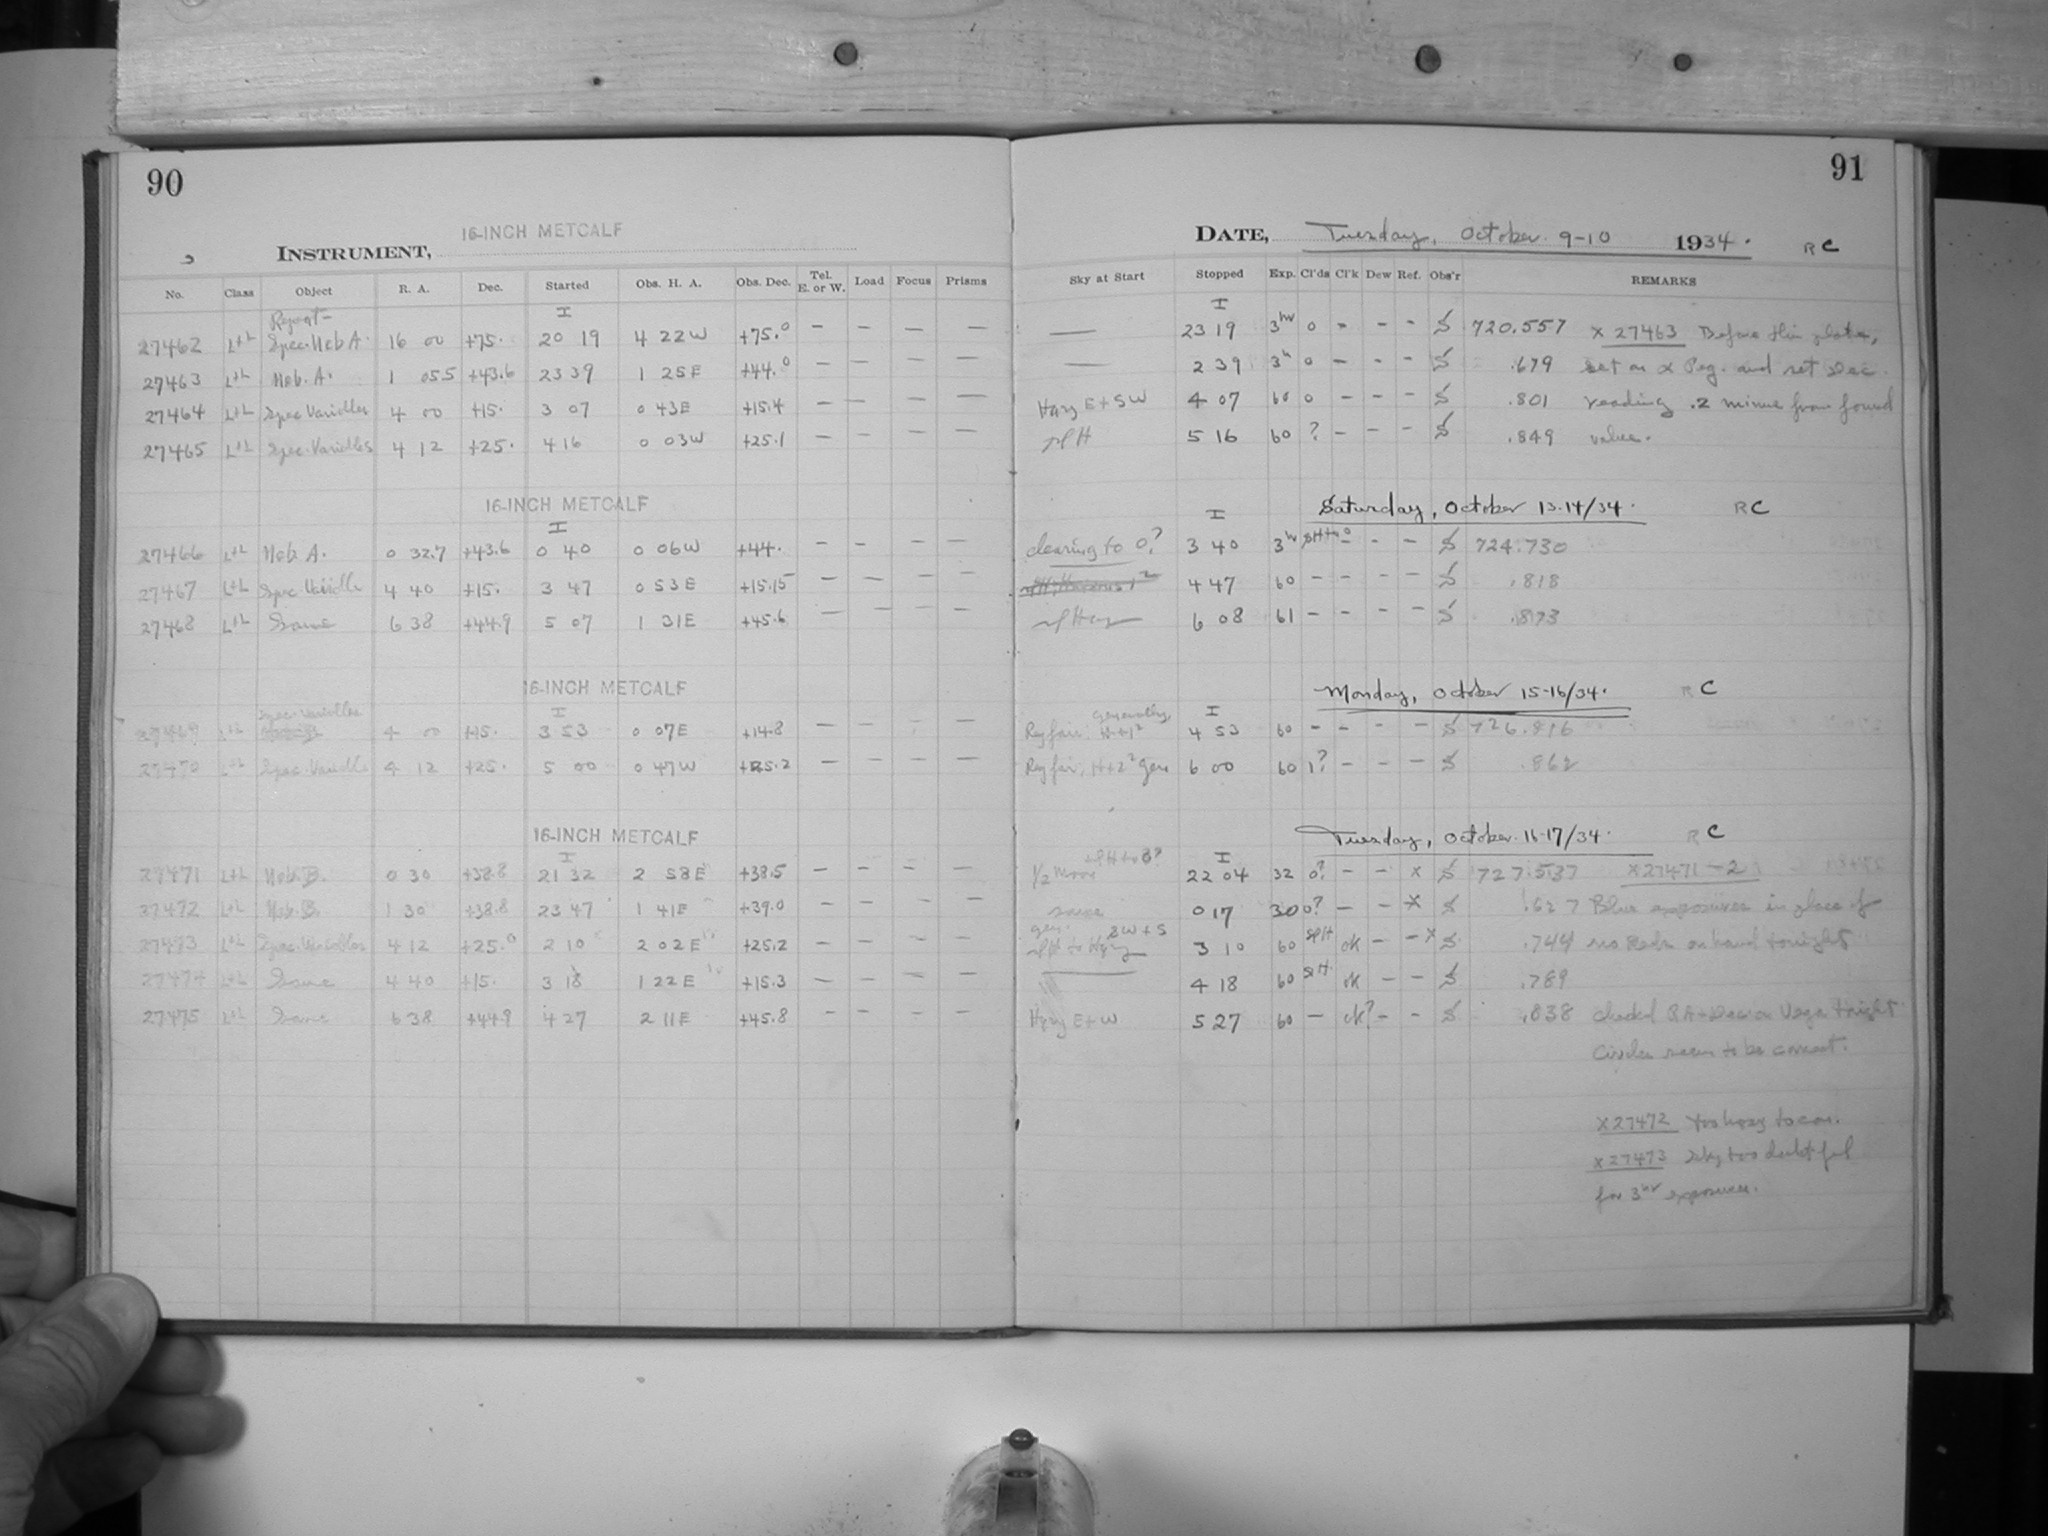 90
91
16-INCH METCALF
INSTRUMENT,
DATE, Tuesday, October 9-10 1934. RC
No. Class Object R. A. Dec. Started Obs. H. A. Obs. Dec. Tel. E. or W. Load Focus Prisms Sky at Start Stopped Exp. Cl'ds Cl'k Dew Ref. Obs'r REMARKS
Repeat
I I
27462 L+L Spec. Neb A. 16 00 +75. 20 19 4 22W +75.0 — — — — — 23 19 3hr 0 - - - S 720.557 X 27463 Before this plate,
27463 L+L Neb. A. 1 05.5 +43.6 23 39 1 25E +44.0 — — — — — 2 39 3h 0 - - - S .679 set on α Peg. and set Dec.
27464 L+L Spec Variables 4 00 +15. 3 07 0 43E +15.4 — — — — Hazy E+SW 4 07 60 0 - - - S .801 reading .2 minus from found
27465 L+L Spec. Variables 4 12 +25. 4 16 0 03W +25.1 — — — — slH 5 16 60 ? - - - S .849 value.
16-INCH METCALF Saturday, October 13-14/34. RC
I I
27466 L+L Neb A. 0 32.7 +43.6 0 40 0 06W +44. — — — — clearing to 0? 3 40 3h - - - S 724.730
27467 L+L Spec Variable 4 40 +15. 3 47 0 53E +15.15 — — — — 4 47 60 - - - - S .818
27468 L+L Same 6 38 +44.9 5 07 1 31E +45.6 — — — — sl Hazy 6 08 61 - - - - S .873
16-INCH METCALF Monday, October 15-16/34. RC
Spec. Variables
I generally I
27469 L+L 4 00 +15. 3 53 0 07E +14.8 — — — — 4 53 60 - - - - S 726.816
27470 L+L Spec. Variable 4 12 +25. 5 00 0 47W +25.2 — — — — 6 00 60 1? - - - S .862
16-INCH METCALF Tuesday, October 16-17/34. RC
I I
27471 L+L Neb. B. 0 30 +38.8 21 32 2 58E +38.5 — — — — 1/2 Moon slH to 0? 22 04 32 0? - - X S 727.537 X27471-2
27472 L+L Neb. B. 1 30 +38.8 23 47 1 41E +39.0 — — — — same 0 17 30 0? - - X S .627 Blue exposures in place of
27473 L+L Spec. Variables 4 12 +25.0 2 10 2 02E +25.2 — — — — gen. slH to Hazy SW+S 3 10 60 slH ok - - X S .744 no Reds on hand tonight
27474 L+L Same 4 40 +15. 3 18 1 22E +15.3 — — — — — 4 18 60 slH ok - - S .789
27475 L+L Same 6 38 +44.9 4 27 2 11E +45.8 — — — — Hazy E+W 5 27 60 - ok? - - S .838 checked RA+Dec on Vega tonight
Circles seem to be correct.
X27472 too hazy to con.
X27473 Sky too doubtful
for 3hr exposures.